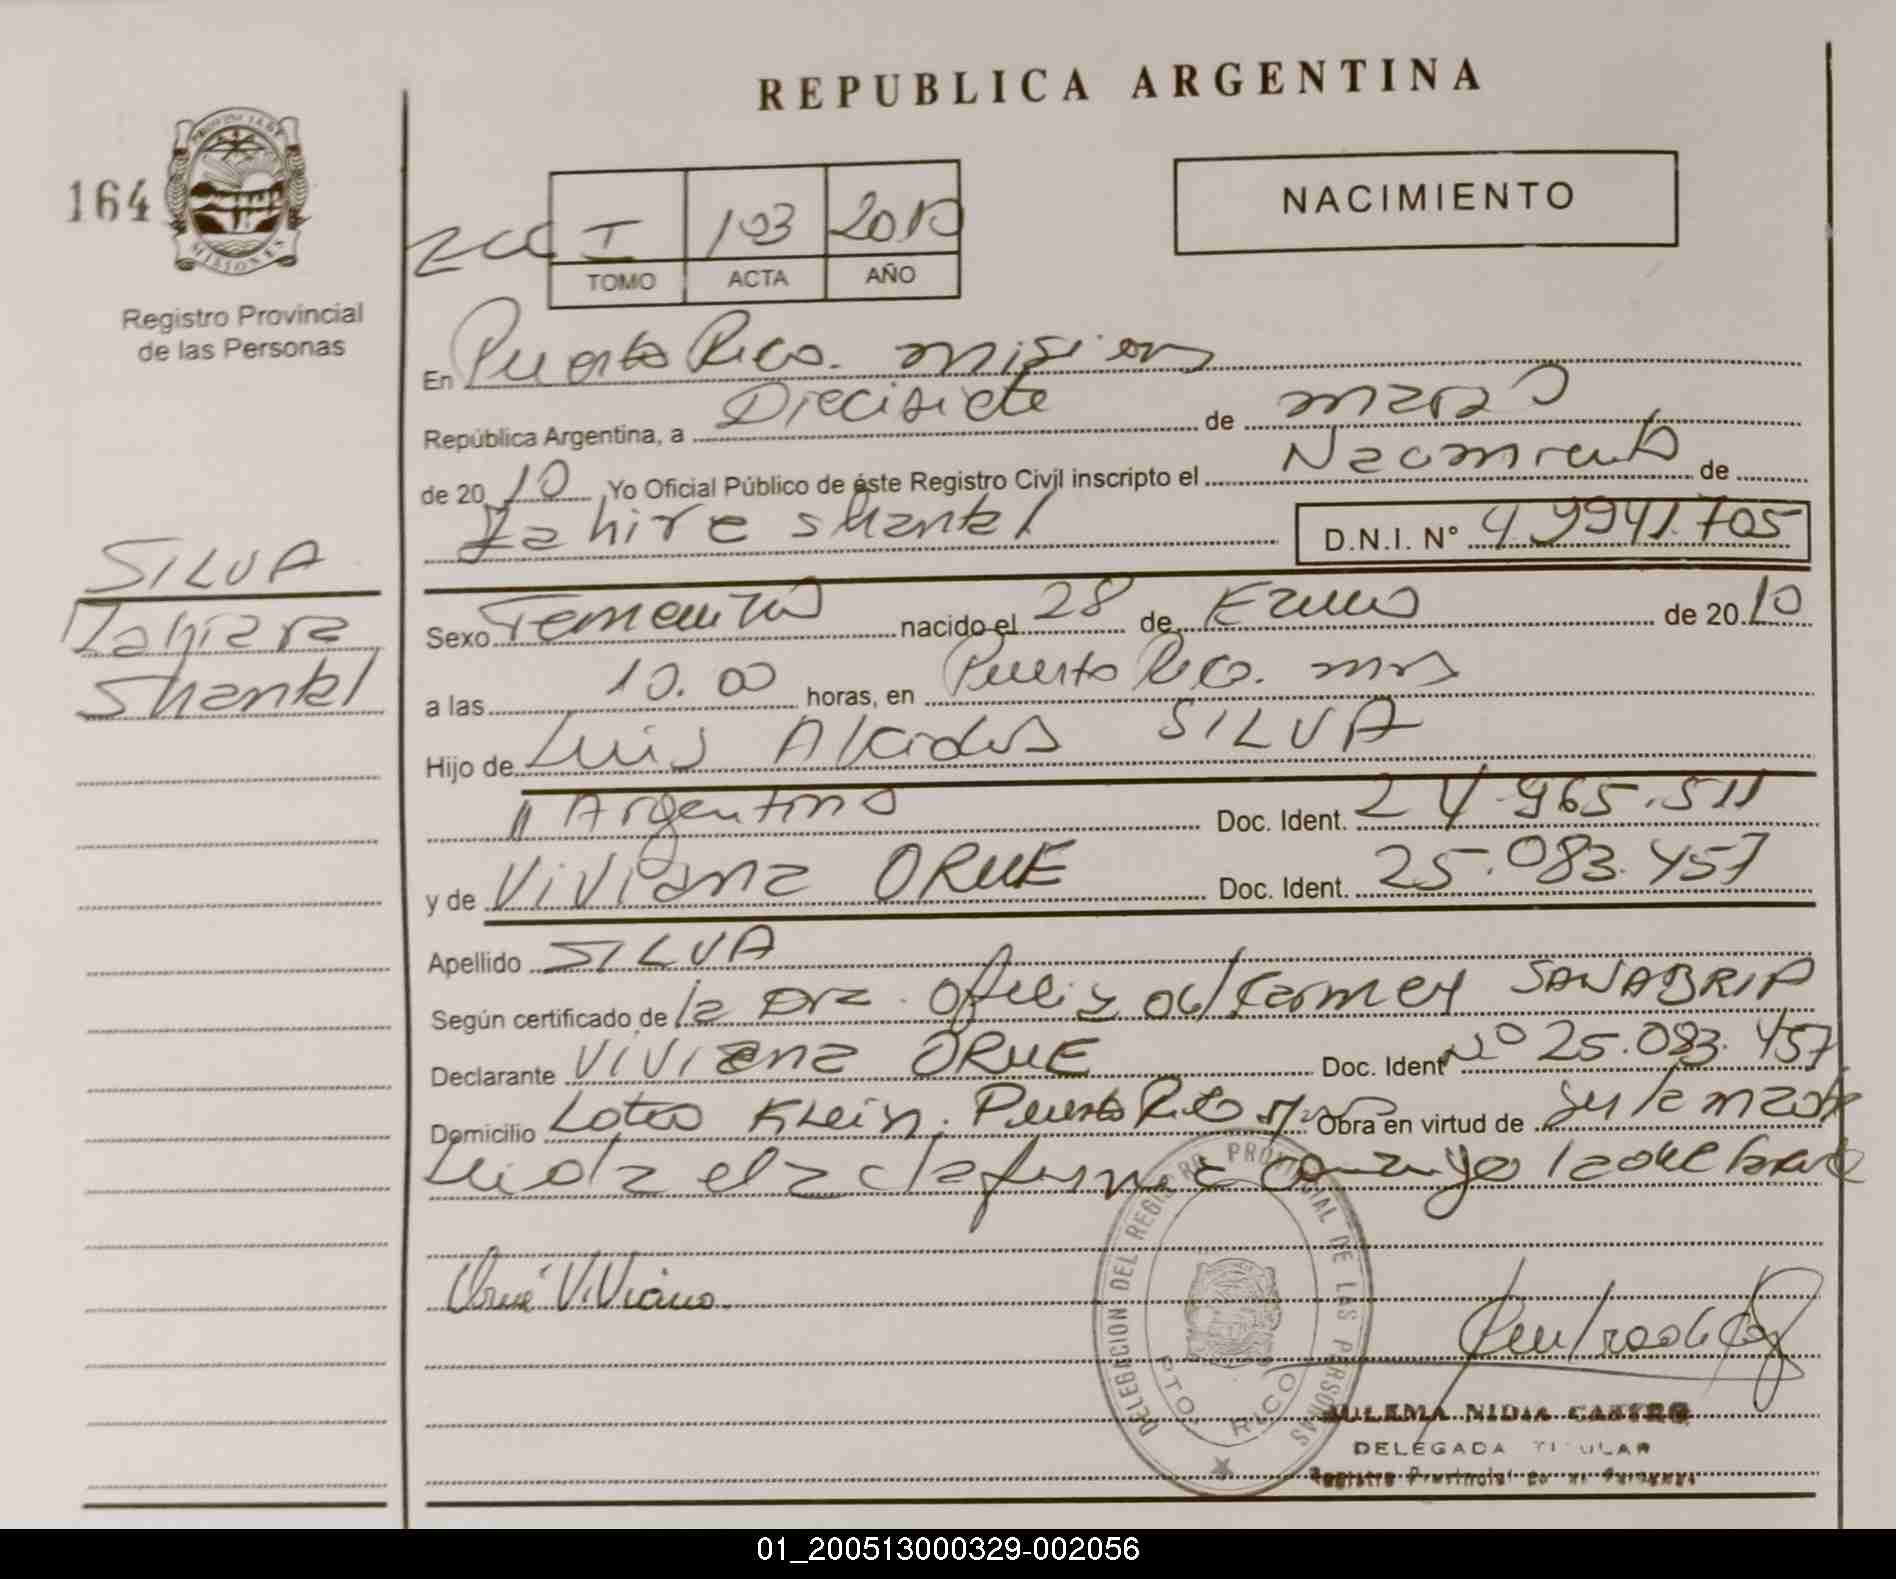 REPUBLICA ARGENTINA
164
PROVINCIA DE
MISIONES
Registro Provincial
de las Personas
NACIMIENTO
I 103 2010
TOMO ACTA AÑO
En Puerto Rico. misiones
República Argentina, a Diecisiete de marzo
de 20 10 Yo Oficial Público de éste Registro Civil inscripto el Nacimiento de
Zahira Shantal D.N.I. N° 49941.705
SILVA
Zahira
Shantal
Sexo Femenino nacido el 28 de Enero de 20 10
a las 10.00 horas, en Puerto Rico. mns
Hijo de Luis Alcides SILVA
Argentino Doc. Ident. 24.965.511
y de Viviana ORUE Doc. Ident. 25.083.457
Apellido SILVA
Según certificado de la Dra. Ofelia del Carmen SANABRIA
Declarante Viviana ORUE Doc. Ident N° 25.083.457
Domicilio Lotes Klein. Puerto Rico Obra en virtud de
Leida el acta firma conmigo la declarante
Orué Viviana.
DELEGACION DEL REGISTRO PROVINCIAL DE LAS PERSONAS
PTO. RICO
ZULEMA NIDIA CASTRO
DELEGADA TITULAR
Registro Provincial de las Personas
01_200513000329-002056